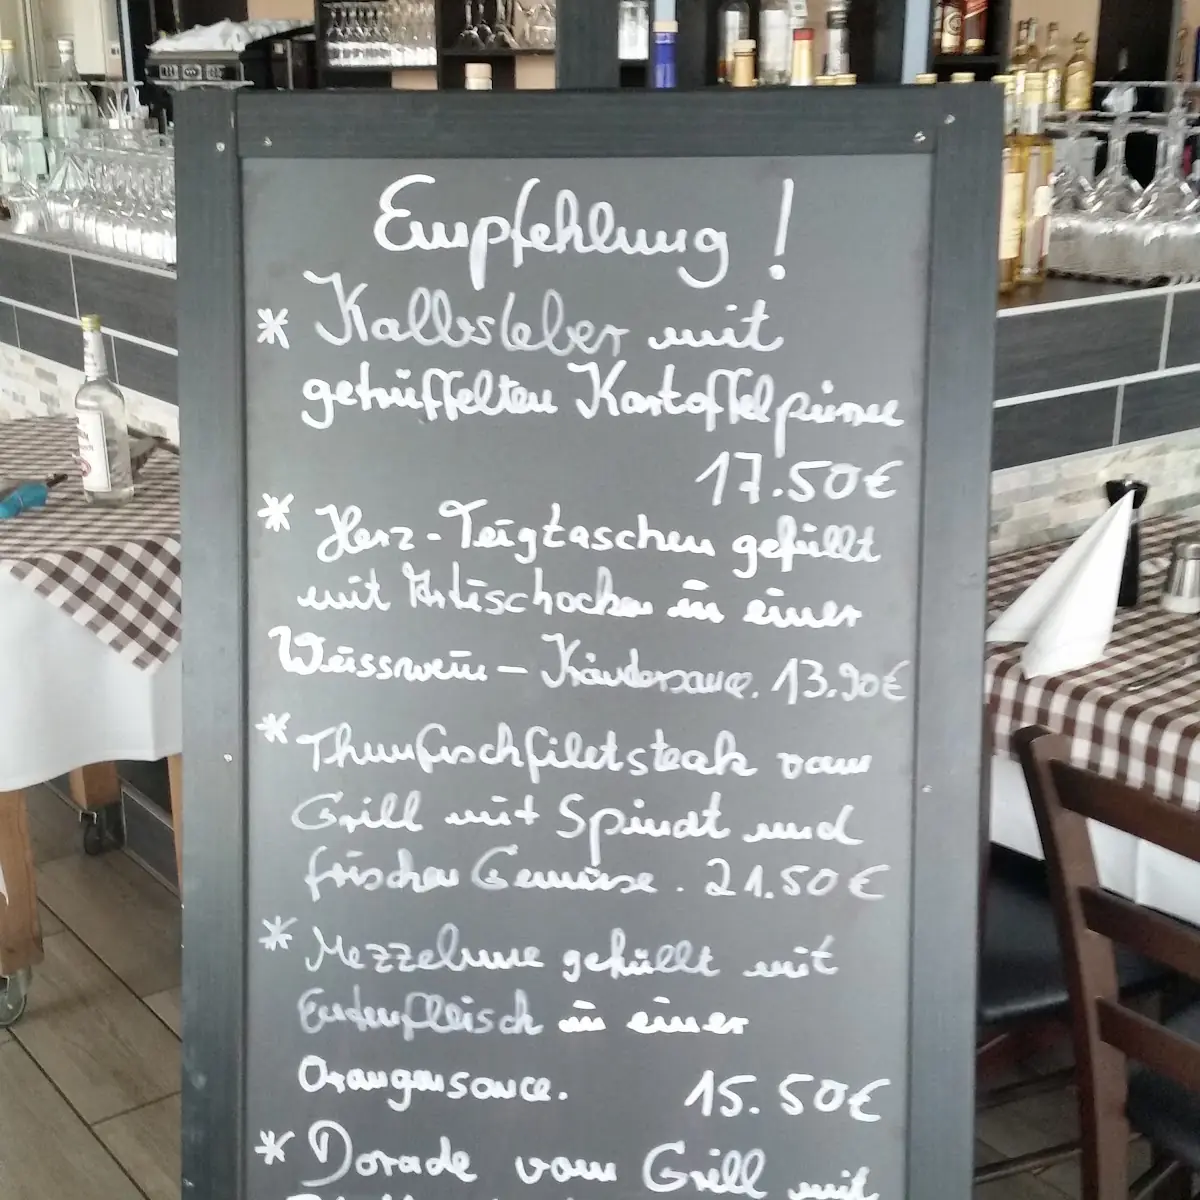 Empfehlung !
* Kalbsleber mit
getrüffelten Kartoffelpüree
17.50€
* Herz-Teigtaschen gefüllt
mit Artischocken in einer
Weisswein – Kräutersauce. 13.90€
* Thunfischfiletsteak vom
Grill mit Spindt und
frischen Gemüse. 21.50€
* Mezzelune gefüllt mit
Entenfleisch in einer
Orangensauce. 15.50€
* Dorade vom Grill mit